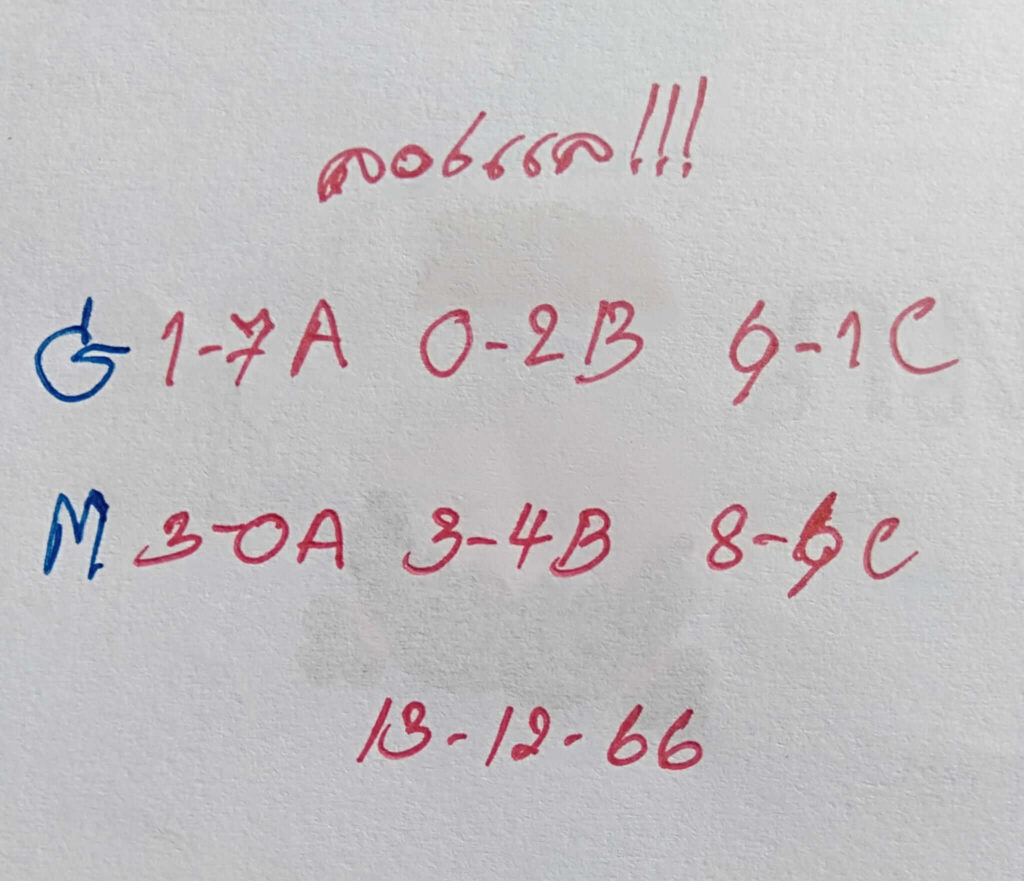 ลอรแรล!!!
G 1-7A 0-2B 9-1C
M 3-0A 3-4B 8-9C
13-12-66